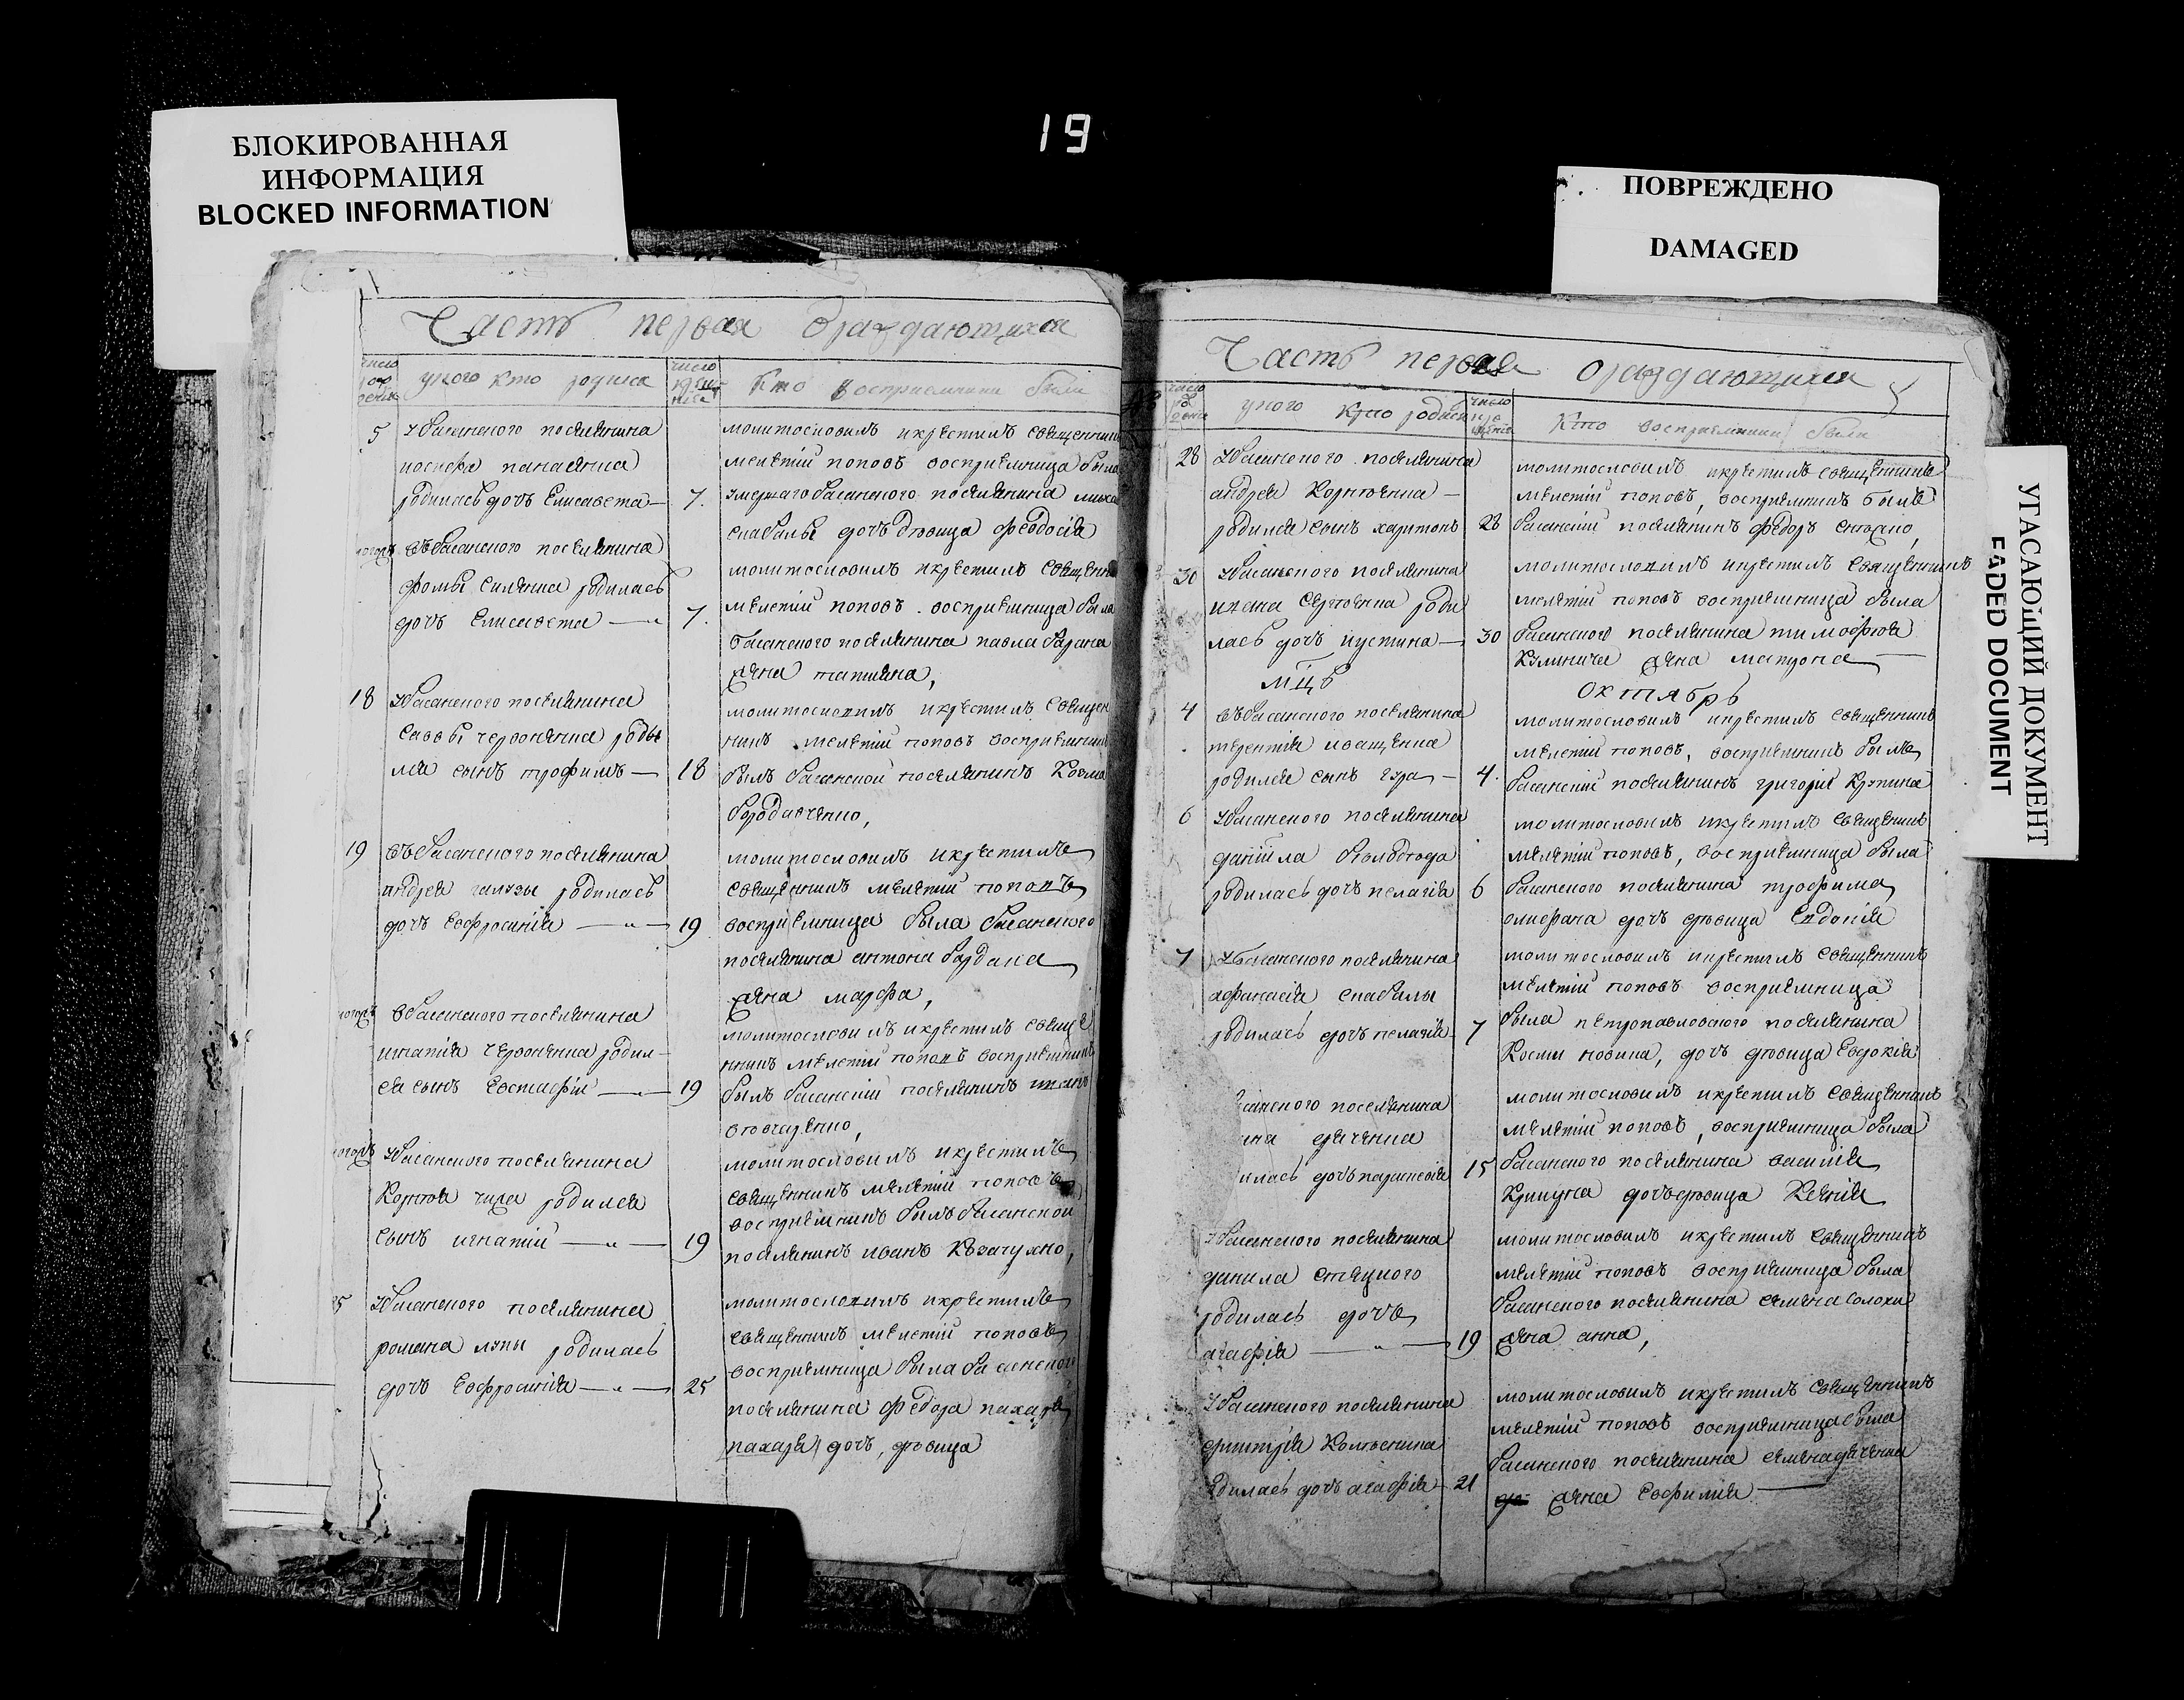 19
БЛОКИРОВАННАЯ
ИНФОРМАЦИЯ
BLOCKED INFORMATION
ПОВРЕЖДЕНО
DAMAGED
УГАСАЮЩИЙ ДОКУМЕНТ
FADED DOCUMENT
Часть первая ораждающихся
число рождения
укого кто родися
число крещения
Кто восприемники были
5
убасанского поселянина
иосифа панасянка
родилась дочь Елисавета
7.
молитословилъ икрестилъ священник
мелетій поповъ восприемница была
умершаго басанского поселянина
скабалы дочь дѣвица феодосія
въбасанского поселянина
фомы силянка родилась
дочь Елисавета
7.
молитословилъ икрестилъ священ
мелетій поповъ восприемница была
басанского поселянина павла барана
жена татияна,
18
убасанского поселянина
саввы червонянка роды
лся сынъ трофимъ
18
молитословилъ икрестилъ священ
никъ мелетій поповъ восприемник
былъ басанской поселянинъ Козма
бородавченко,
19
въбасанского поселянина
андрея галузы родилась
дочь Евфросинія
19
молитословилъ икрестилъ
священникъ мелетій поповъ
восприемница была басанского
поселянина антона бардака
жена марфа,
вбасанского поселянина
игнатія червонянка родил
ся сынъ Евстафій
19
молитословилъ икрестилъ свяще
нникъ мелетій поповъ восприемникъ
былъ басанскій поселянинъ
вовчаренко,
убасанского поселянина
родился
сынъ игнатій
19
молитословилъ икрестилъ
священникъ мелетій поповъ
восприемникъ былъ басанской
поселянинъ иванъ
убасанского поселянина
романа лупы родилась
дочь Евфросинія
25
молитословилъ икрестилъ
священникъ мелетій поповъ
восприемница была басанского
поселянина федора пахаря
пахаря дочь, дѣвица
Часть первая ораждающихся
число рождения
укого кто родися
число крещения
Кто восприемники были
28
убасанского поселянина
андрея Корнюенка
родился сынъ харитонъ
28
молитословилъ икрестилъ священникъ
мелетій поповъ, восприемникъ былъ
басанскій поселянинъ федоръ
30
убасанского поселянина
ивана Сергѣенка роди
лась дочь иустина
30
молитословилъ икрестилъ священникъ
мелетій поповъ восприемница была
басанского поселянина тимофѣя
Кулинича жена матрона
мцъ
октябрь
4
въбасанского поселянина
терентія иващенка
родился сынъ
4.
молитословилъ икрестилъ священникъ
мелетій поповъ, восприемникъ былъ
басанскій поселянинъ григорій Крупина
6
убасанского поселянина
даніила
родилась дочь пелагія
6
молитословилъ икрестилъ священникъ
мелетій поповъ, восприемница была
басанского поселянина трофима
олифана дочь дѣвица Евдокія
7
убасанского поселянина
афанасія скабалы
родилась дочь пелагія
7
молитословилъ икрестилъ священникъ
мелетій поповъ восприемница
была петропавловского поселянина
Космы новика, дочь дѣвица Евдокія
санского поселянина
дяченка
илась дочь параскевія
15
молитословилъ икрестилъ священникъ
мелетій поповъ, восприемница была
басанского поселянина василія
Крикуна дочь дѣвица Ксенія
убасанского поселянина
данила стецкого
родилась дочь
агафія
19
молитословилъ икрестилъ священникъ
мелетій поповъ восприемница была
басанского поселянина семена солохи
жена анна,
убасанского поселянина
димитрія
одилась дочь агафія
21
молитословилъ икрестилъ священникъ
мелетій поповъ восприемница была
басанского поселянина семена дяченка
жена Евфимія